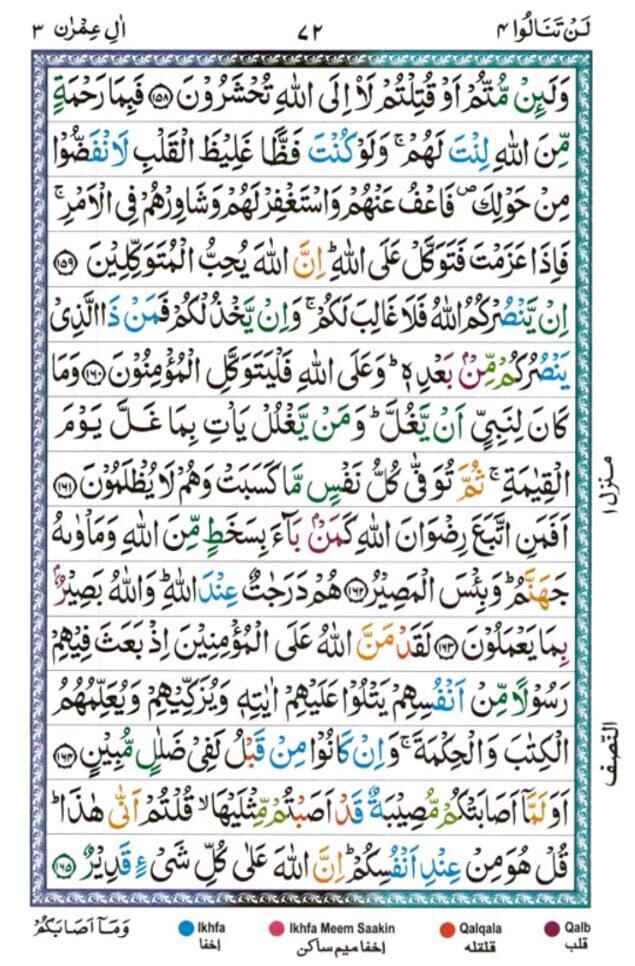 لَنْ تَنَالُوْا ۴ ۷۲ اٰلِ عِمْرٰن ۳
وَلَىِٕنْ مُّتُّمْ اَوْ قُتِلْتُمْ لَاْ اِلَى اللّٰهِ تُحْشَرُوْنَ ﴿۱۵۸﴾ فَبِمَا رَحْمَةٍ
مِّنَ اللّٰهِ لِنْتَ لَهُمْ ۚ وَلَوْ كُنْتَ فَظًّا غَلِيْظَ الْقَلْبِ لَانْفَضُّوْا
مِنْ حَوْلِكَ ۪ فَاعْفُ عَنْهُمْ وَاسْتَغْفِرْ لَهُمْ وَشَاوِرْهُمْ فِى الْاَمْرِ ۚ
فَاِذَا عَزَمْتَ فَتَوَكَّلْ عَلَى اللّٰهِ ؕ اِنَّ اللّٰهَ يُحِبُّ الْمُتَوَكِّلِيْنَ ﴿۱۵۹﴾
اِنْ يَّنْصُرْكُمُ اللّٰهُ فَلَا غَالِبَ لَكُمْ ۚ وَاِنْ يَّخْذُلْكُمْ فَمَنْ ذَا الَّذِىْ
يَنْصُرُكُمْ مِّنْۢ بَعْدِهٖ ؕ وَعَلَى اللّٰهِ فَلْيَتَوَكَّلِ الْمُؤْمِنُوْنَ ﴿۱۶۰﴾ وَمَا
كَانَ لِنَبِىٍّ اَنْ يَّغُلَّ ؕ وَمَنْ يَّغْلُلْ يَاْتِ بِمَا غَلَّ يَوْمَ
الْقِيٰمَةِ ۚ ثُمَّ تُوَفّٰى كُلُّ نَفْسٍ مَّا كَسَبَتْ وَهُمْ لَا يُظْلَمُوْنَ ﴿۱۶۱﴾
اَفَمَنِ اتَّبَعَ رِضْوَانَ اللّٰهِ كَمَنْۢ بَآءَ بِسَخَطٍ مِّنَ اللّٰهِ وَمَاْوٰىهُ
جَهَنَّمُ ؕ وَبِئْسَ الْمَصِيْرُ ﴿۱۶۲﴾ هُمْ دَرَجٰتٌ عِنْدَ اللّٰهِ ؕ وَاللّٰهُ بَصِيْرٌۢ
بِمَا يَعْمَلُوْنَ ﴿۱۶۳﴾ لَقَدْ مَنَّ اللّٰهُ عَلَى الْمُؤْمِنِيْنَ اِذْ بَعَثَ فِيْهِمْ
رَسُوْلًا مِّنْ اَنْفُسِهِمْ يَتْلُوْا عَلَيْهِمْ اٰيٰتِهٖ وَيُزَكِّيْهِمْ وَيُعَلِّمُهُمُ
الْكِتٰبَ وَالْحِكْمَةَ ۚ وَاِنْ كَانُوْا مِنْ قَبْلُ لَفِىْ ضَلٰلٍ مُّبِيْنٍ ﴿۱۶۴﴾
اَوَلَمَّآ اَصَابَتْكُمْ مُّصِيْبَةٌ قَدْ اَصَبْتُمْ مِّثْلَيْهَا ۙ قُلْتُمْ اَنّٰى هٰذَا ؕ
قُلْ هُوَ مِنْ عِنْدِ اَنْفُسِكُمْ ؕ اِنَّ اللّٰهَ عَلٰى كُلِّ شَىْءٍ قَدِيْرٌ ﴿۱۶۵﴾
منزل ۱
النّصف
وَمَآ اَصَابَكُمْ
Ikhfa Ikhfa Meem Saakin Qalqala Qalb
إخفا إخفا ميم ساكن قلقله قلب